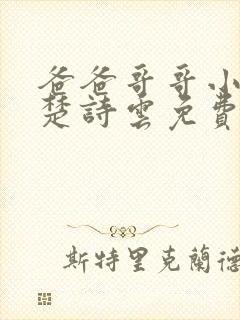 爸爸哥哥小
楚詩雲免費
斯特里克蘭德